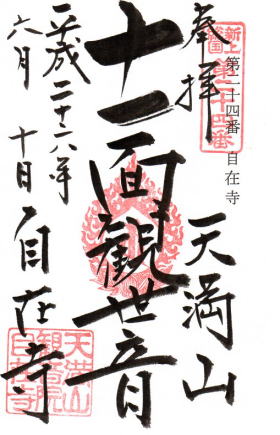 新上
総国
第二十四番
第二十四番 自在寺
奉拝
天満山
十一面観世音
平成二十六年
六月十日
自在寺
天満山
観音院
自在寺